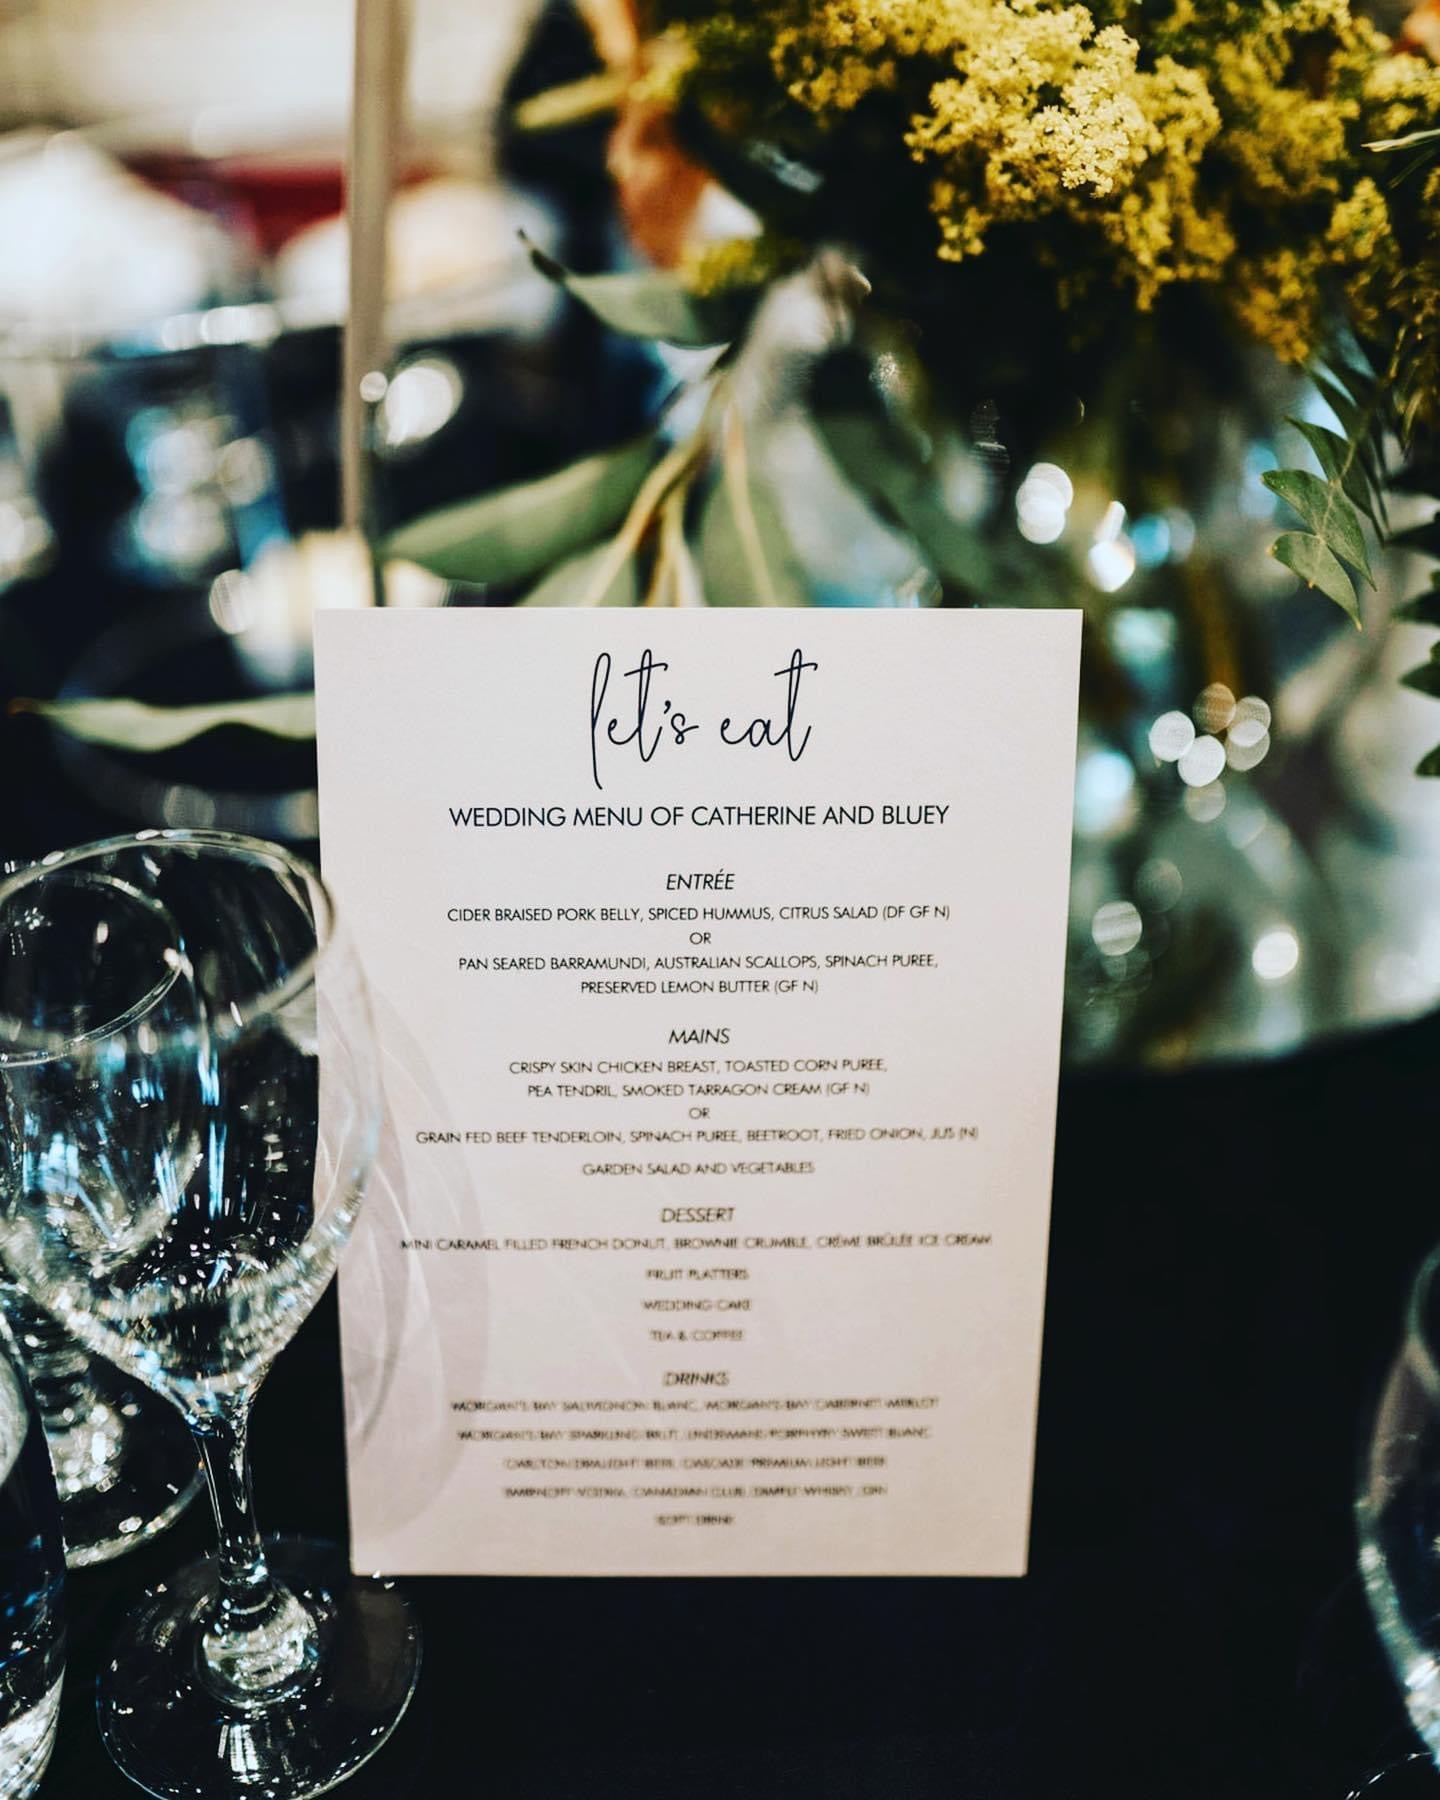 let's eat
WEDDING MENU OF CATHERINE AND BLUEY
ENTRÉE
CIDER BRAISED PORK BELLY, SPICED HUMMUS, CITRUS SALAD (DF GF N)
OR
PAN SEARED BARRAMUNDI, AUSTRALIAN SCALLOPS, SPINACH PUREE,
PRESERVED LEMON BUTTER (GF N)
MAINS
CRISPY SKIN CHICKEN BREAST, TOASTED CORN PUREE,
PEA TENDRIL, SMOKED TARRAGON CREAM (GF N)
OR
GRAIN FED BEEF TENDERLOIN, SPINACH PUREE, BEETROOT, FRIED ONION, JUS (N)
GARDEN SALAD AND VEGETABLES
DESSERT
MINI CARAMEL FILLED FRENCH DONUT, BROWNIE CRUMBLE, CRÈME BRÛLÉE ICE CREAM
FRUIT PLATTERS
WEDDING CAKE
TEA & COFFEE
DRINKS
MORGAN'S BAY SAUVIGNON BLANC, MORGAN'S BAY CABERNET MERLOT
MORGAN'S BAY SPARKLING BRUT, LINDEMANS PORPHYRY SWEET BLANC
CARLTON DRAUGHT BEER, CASCADE PREMIUM LIGHT BEER
SMIRNOFF VODKA, CANADIAN CLUB, DIMPLE WHISKY, GIN
SOFT DRINK